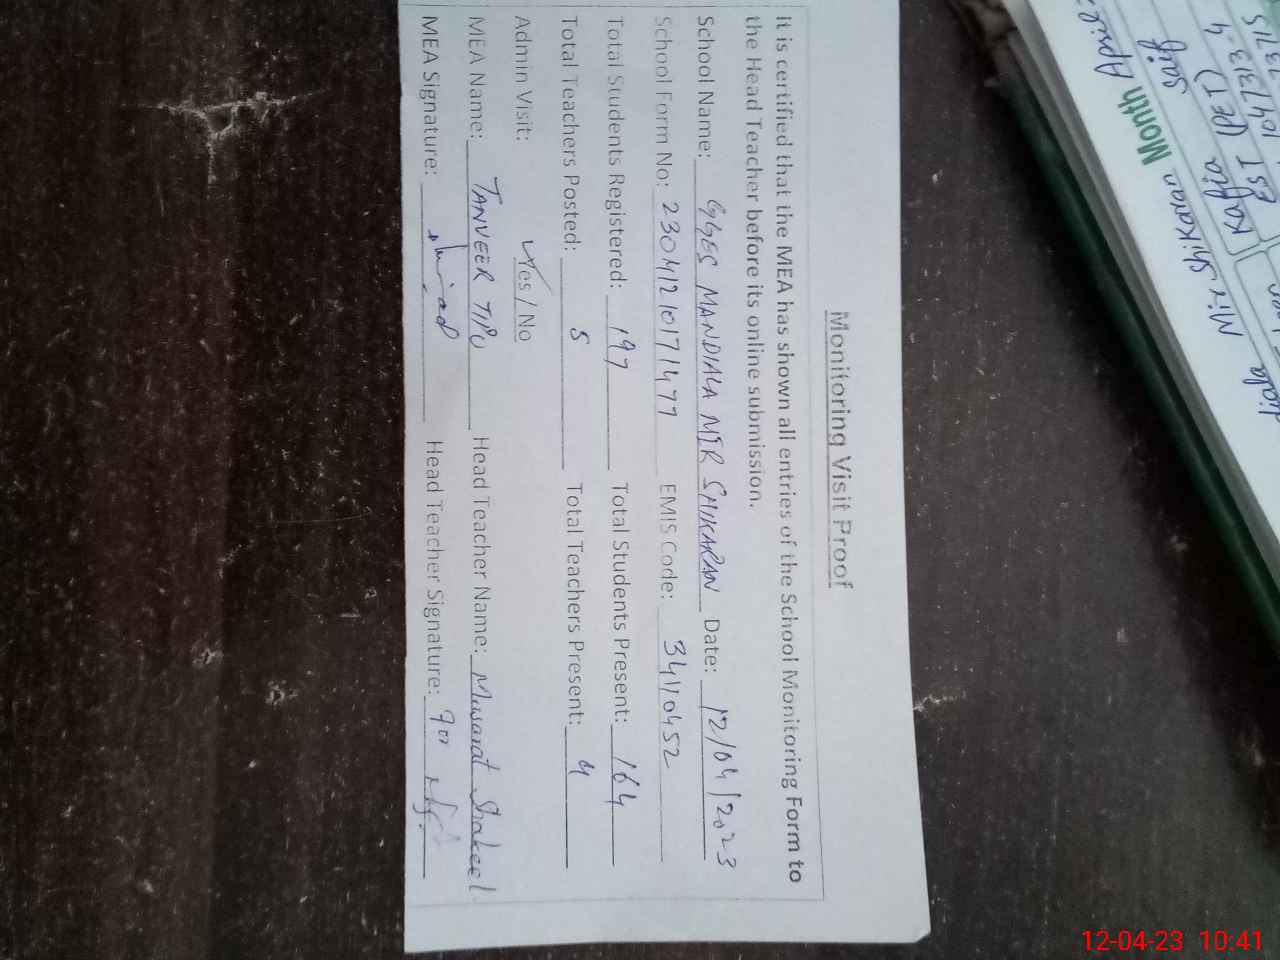 Monitoring Visit Proof
It is certified that the MEA has shown all entries of the School Monitoring Form to
the Head Teacher before its online submission.
School Name: GGES MANDIALA MIR SHIKARAN Date: 12/04/2023
School Form No: 23041210171477 EMIS Code: 34110452
Total Students Registered: 197 Total Students Present: 164
Total Teachers Posted: 5 Total Teachers Present: 4
Admin Visit: Yes / No
MEA Name: TANVEER TIPU Head Teacher Name: Musarat Shakeel
MEA Signature: Head Teacher Signature:
Mir Shikaran Month April
Kafia Saif
EST (PET)
12-04-23 10:41